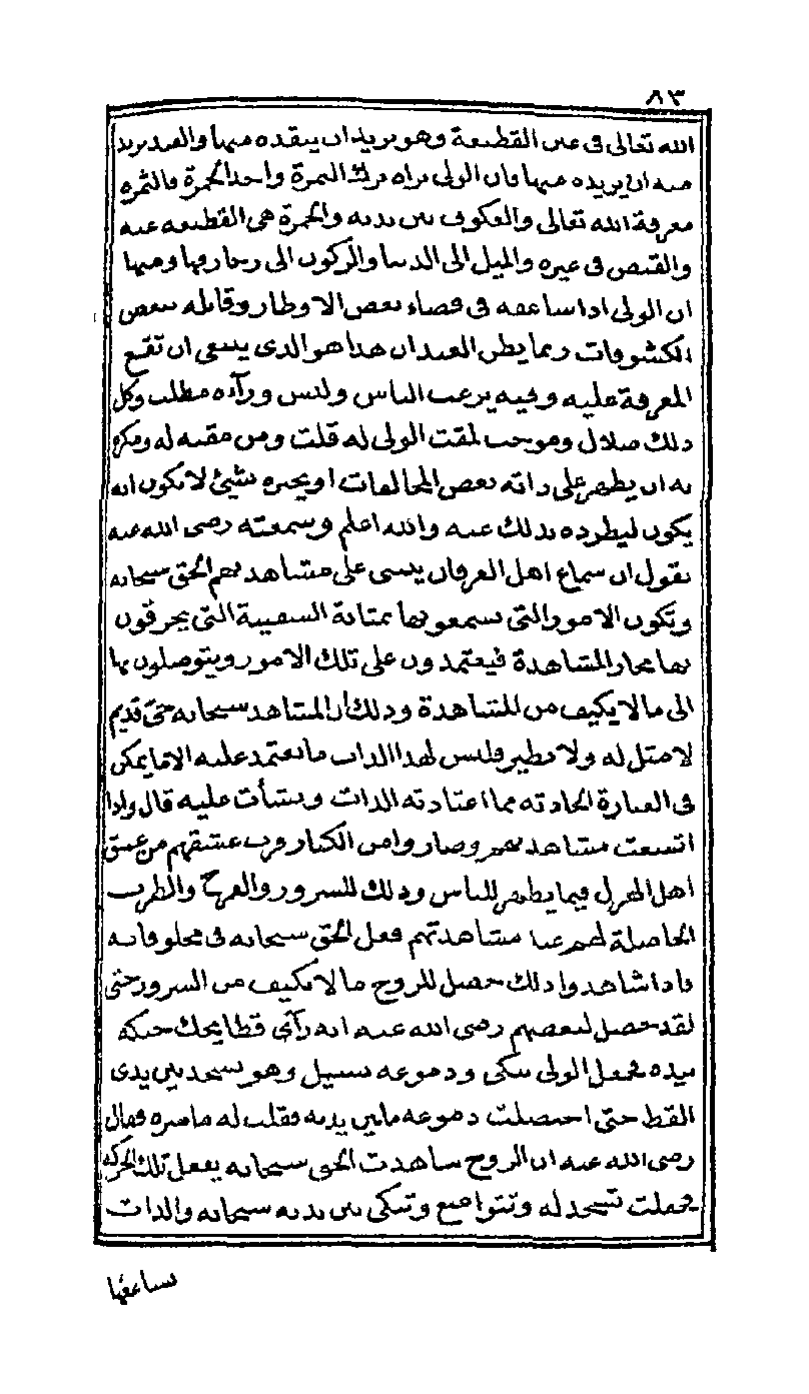 ٨٣
الله تعالى فى عين القطيعة وهو يريد ان ينقذه منها والعبد يريد
منه ان يزيده منها فان الولى يراه ترك التمرة واخذ الجمرة فالتمرة
معرفة الله تعالى والعكوف بين يديه والجمرة هى القطيعة عنه
والقبض فى غيره والميل الى الدنيا والركون الى زخارفها ومنها
ان الولى اذا ساعفه فى قضاء بعض الاوطار وقابله ببعض
الكشوفات ربما يظن العبد ان هذا هو الذى ينبغى ان تقع
المعرفة عليه وفيه يرغب الناس وليس ورآءه مطلب وكل
ذلك ضلال وموجب لمقت الولى له قلت ومن مقته له ومكره
به ان يظهر على ذاته بعض المخالفات او يخبره بشئ لا يكون انه
يكون ليطرده بذلك عنه والله اعلم وسمعته رضى الله عنه
يقول ان سماع اهل العرفان ينبنى على مشاهدتهم الحق سبحانه
وتكون الامور التى يسمعونها بمثابة السفينة التى يخرقون
بها بحار المشاهدة فيعتمدون على تلك الامور ويتوصلون بها
الى ما لا يكيف من المشاهدة وذلك ان المشاهد سبحانه حى قديم
لا مثل له ولا نظير فليس لهذا الذات ما تعتمد عليه الا ما يمكن
فى العبارة الحادثه مما اعتادته الذات ونشأت عليه قال واذا
اتسعت مشاهدتهم وصاروا من الكبار قرب عشقهم من عشق
اهل الهزل فيما يظهر للناس وذلك للسرور والفرح والطرب
الحاصلة لهم عند مشاهدتهم فعل الحق سبحانه فى مخلوقاته
فاذا شاهدوا ذلك حصل للروح ما لا يكيف من السرور حتى
لقد حصل لبعضهم رضى الله عنه انه رآى قطا يحك حنكه
بيده فجعل الولى يبكى ودموعه تسيل وهو يسجد بين يدى
القط حتى اخضلت دموعه ما بين يديه فقلت له ما سره فقال
رضى الله عنه ان الروح شاهدت الحق سبحانه يفعل تلك الحركة
فجعلت تسجد له وتتواضع وتبكى بين يديه سبحانه والذات
ساعفها